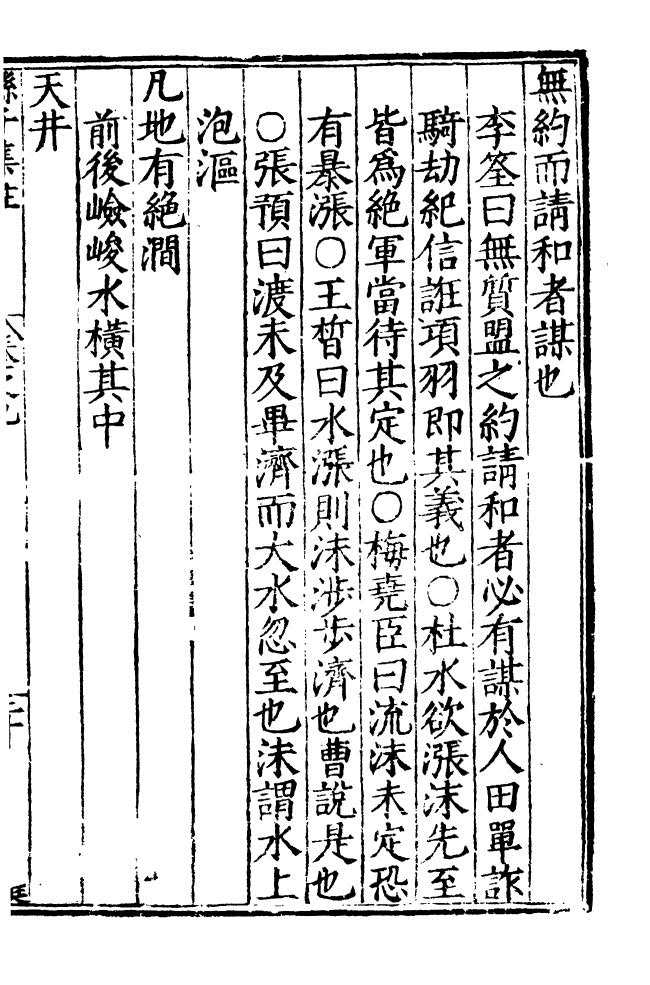 無約而請和者謀也
李筌曰無質盟之約請和者必有謀於人田單詐
騎劫紀信誑項羽即其義也○杜水欲漲沫先至
皆爲絶軍當待其定也○梅堯臣曰流沫未定恐
有暴漲○王晳曰水漲則沫涉步濟也曹說是也
○張預曰渡未及畢濟而大水忽至也沫謂水上
泡漚
凡地有絶澗
前後嶮峻水橫其中
天井